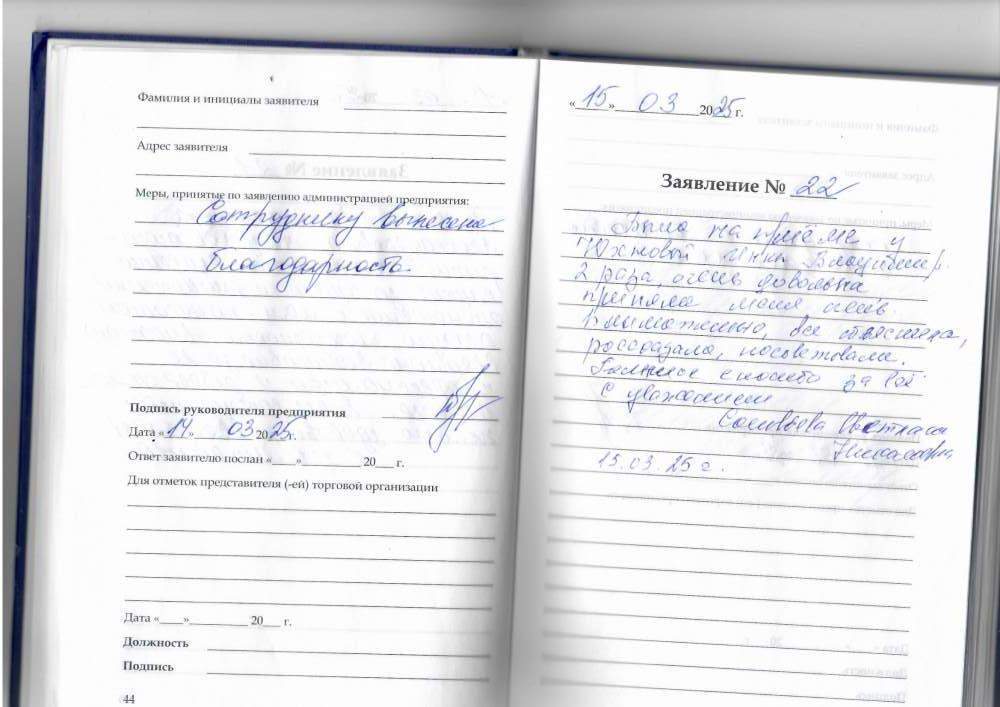 Фамилия и инициалы заявителя
Адрес заявителя
Меры, принятые по заявлению администрацией предприятия:
Сотруднику вынесена
благодарность.
Подпись руководителя предприятия
Дата «17» 03 2025г.
Ответ заявителю послан «___»__________ 20___ г.
Для отметок представителя (-ей) торговой организации
Дата «____»__________ 20___ г.
Должность
Подпись
44
«15» 03 2025 г.
Заявление № 22
Была на приеме у
Юхновой Инны Владимир.
2 раза, очень довольна
приняла меня очень
внимательно, все объяснила,
рассказала, посоветовала.
Большое спасибо за
С уважением
Соловьева Светлана
Николаевна
15.03.25 г.